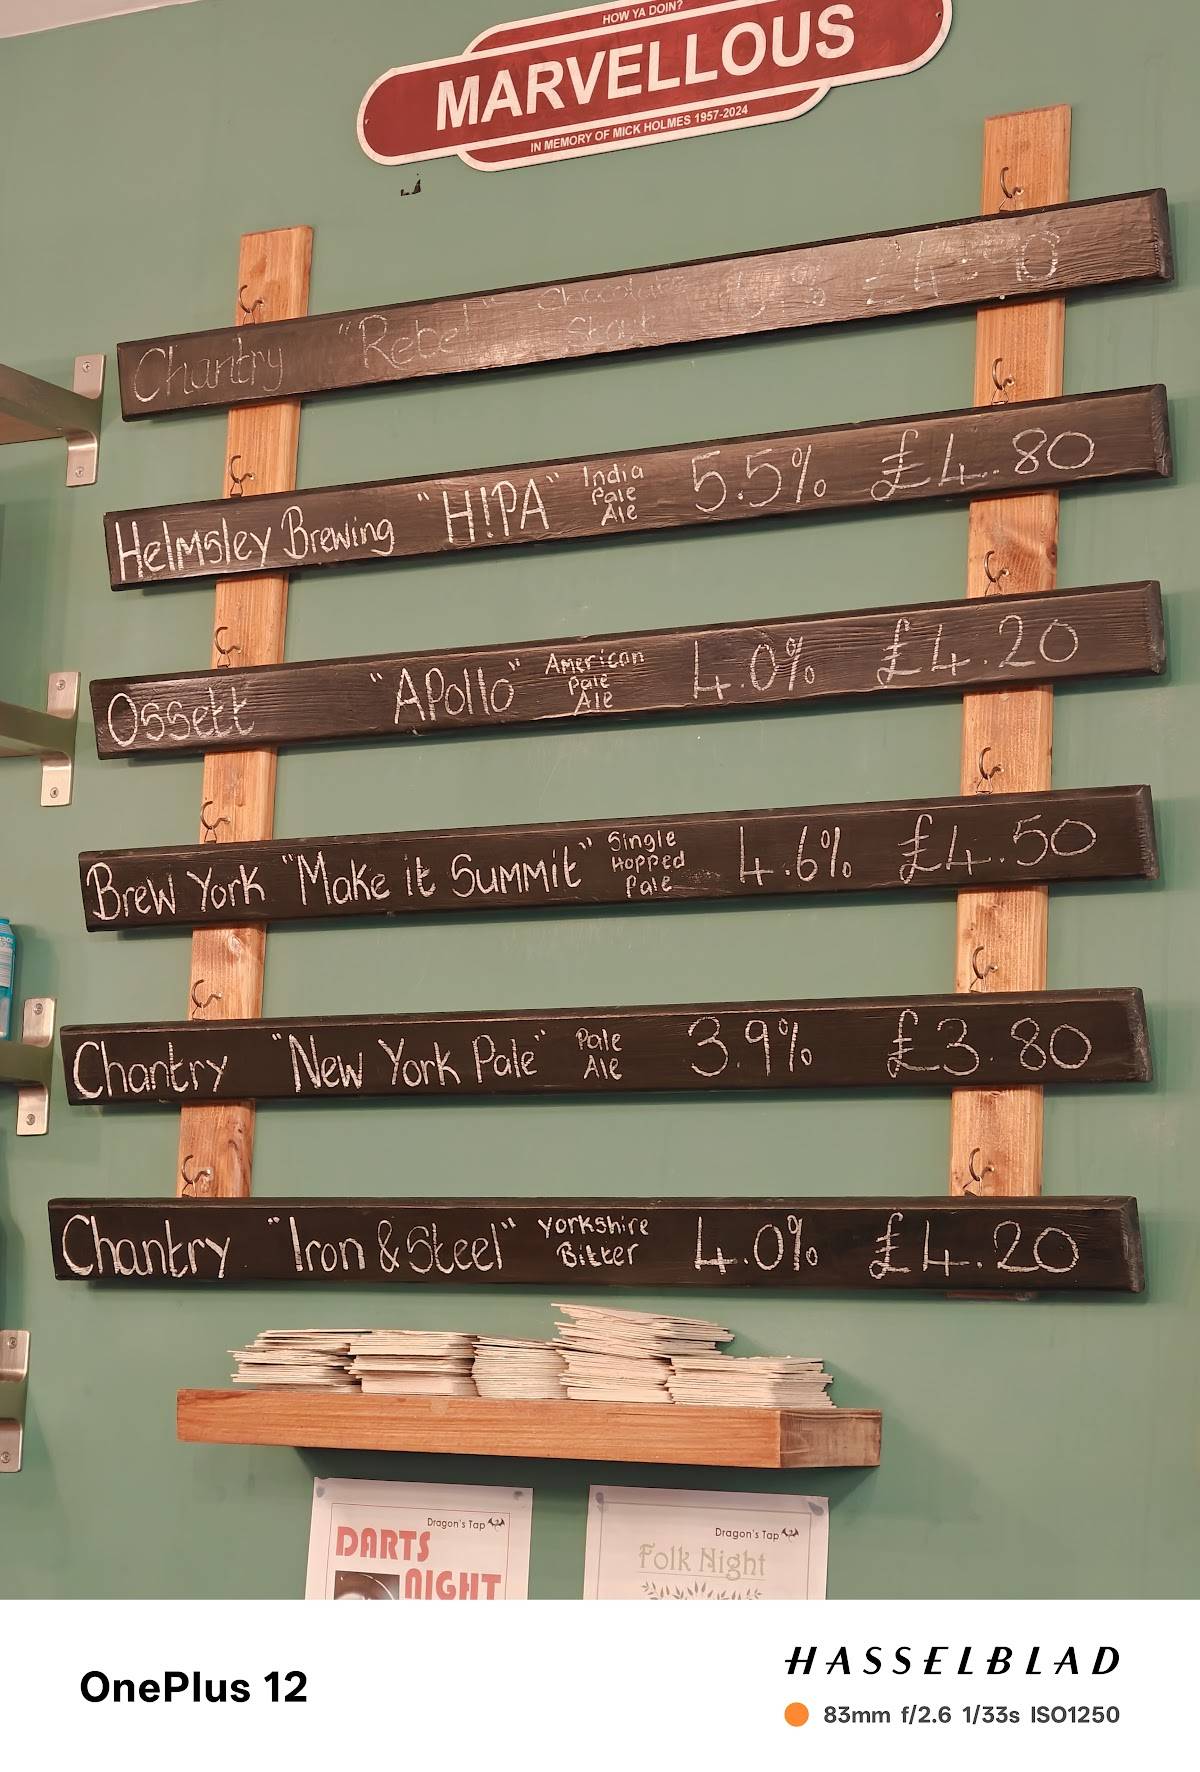 HOW YA DOIN?
MARVELLOUS
IN MEMORY OF MICK HOLMES 1957-2024
Chantry "Rebel" Chocolate Stout £4.
Helmsley Brewing "H!PA" India Pale Ale 5.5% £4.80
Ossett "APollo" American Pale Ale 4.0% £4.20
Brew York "Make it Summit" Single Hopped Pale 4.6% £4.50
Chantry "New York Pale" Pale Ale 3.9% £3.80
Chantry "Iron & Steel" Yorkshire Bitter 4.0% £4.20
Dragon's Tap
DARTS
NIGHT
Dragon's Tap
Folk Night
OnePlus 12
HASSELBLAD
83mm f/2.6 1/33s ISO1250